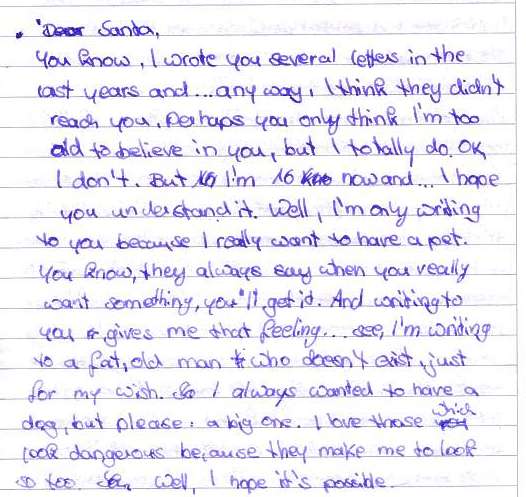 • "Dear Santa,
You know, I wrote you several letters in the
last years and... any way, I think they didn't
reach you. Perhaps you only think I'm too
old to believe in you, but I totally do. OK
I don't. But I'm 16 now and... I hope
you understand it. Well, I'm only writing
to you because I really want to have a pet.
You know, they always say when you really
want something, you'll get it. And writing to
you gives me that feeling... see, I'm writing
to a fat, old man who doesn't exist, just
for my wish. So I always wanted to have a
dog, but please: a big one. I love those which
look dangerous because they make me to look
so too. Well, I hope it's possible.